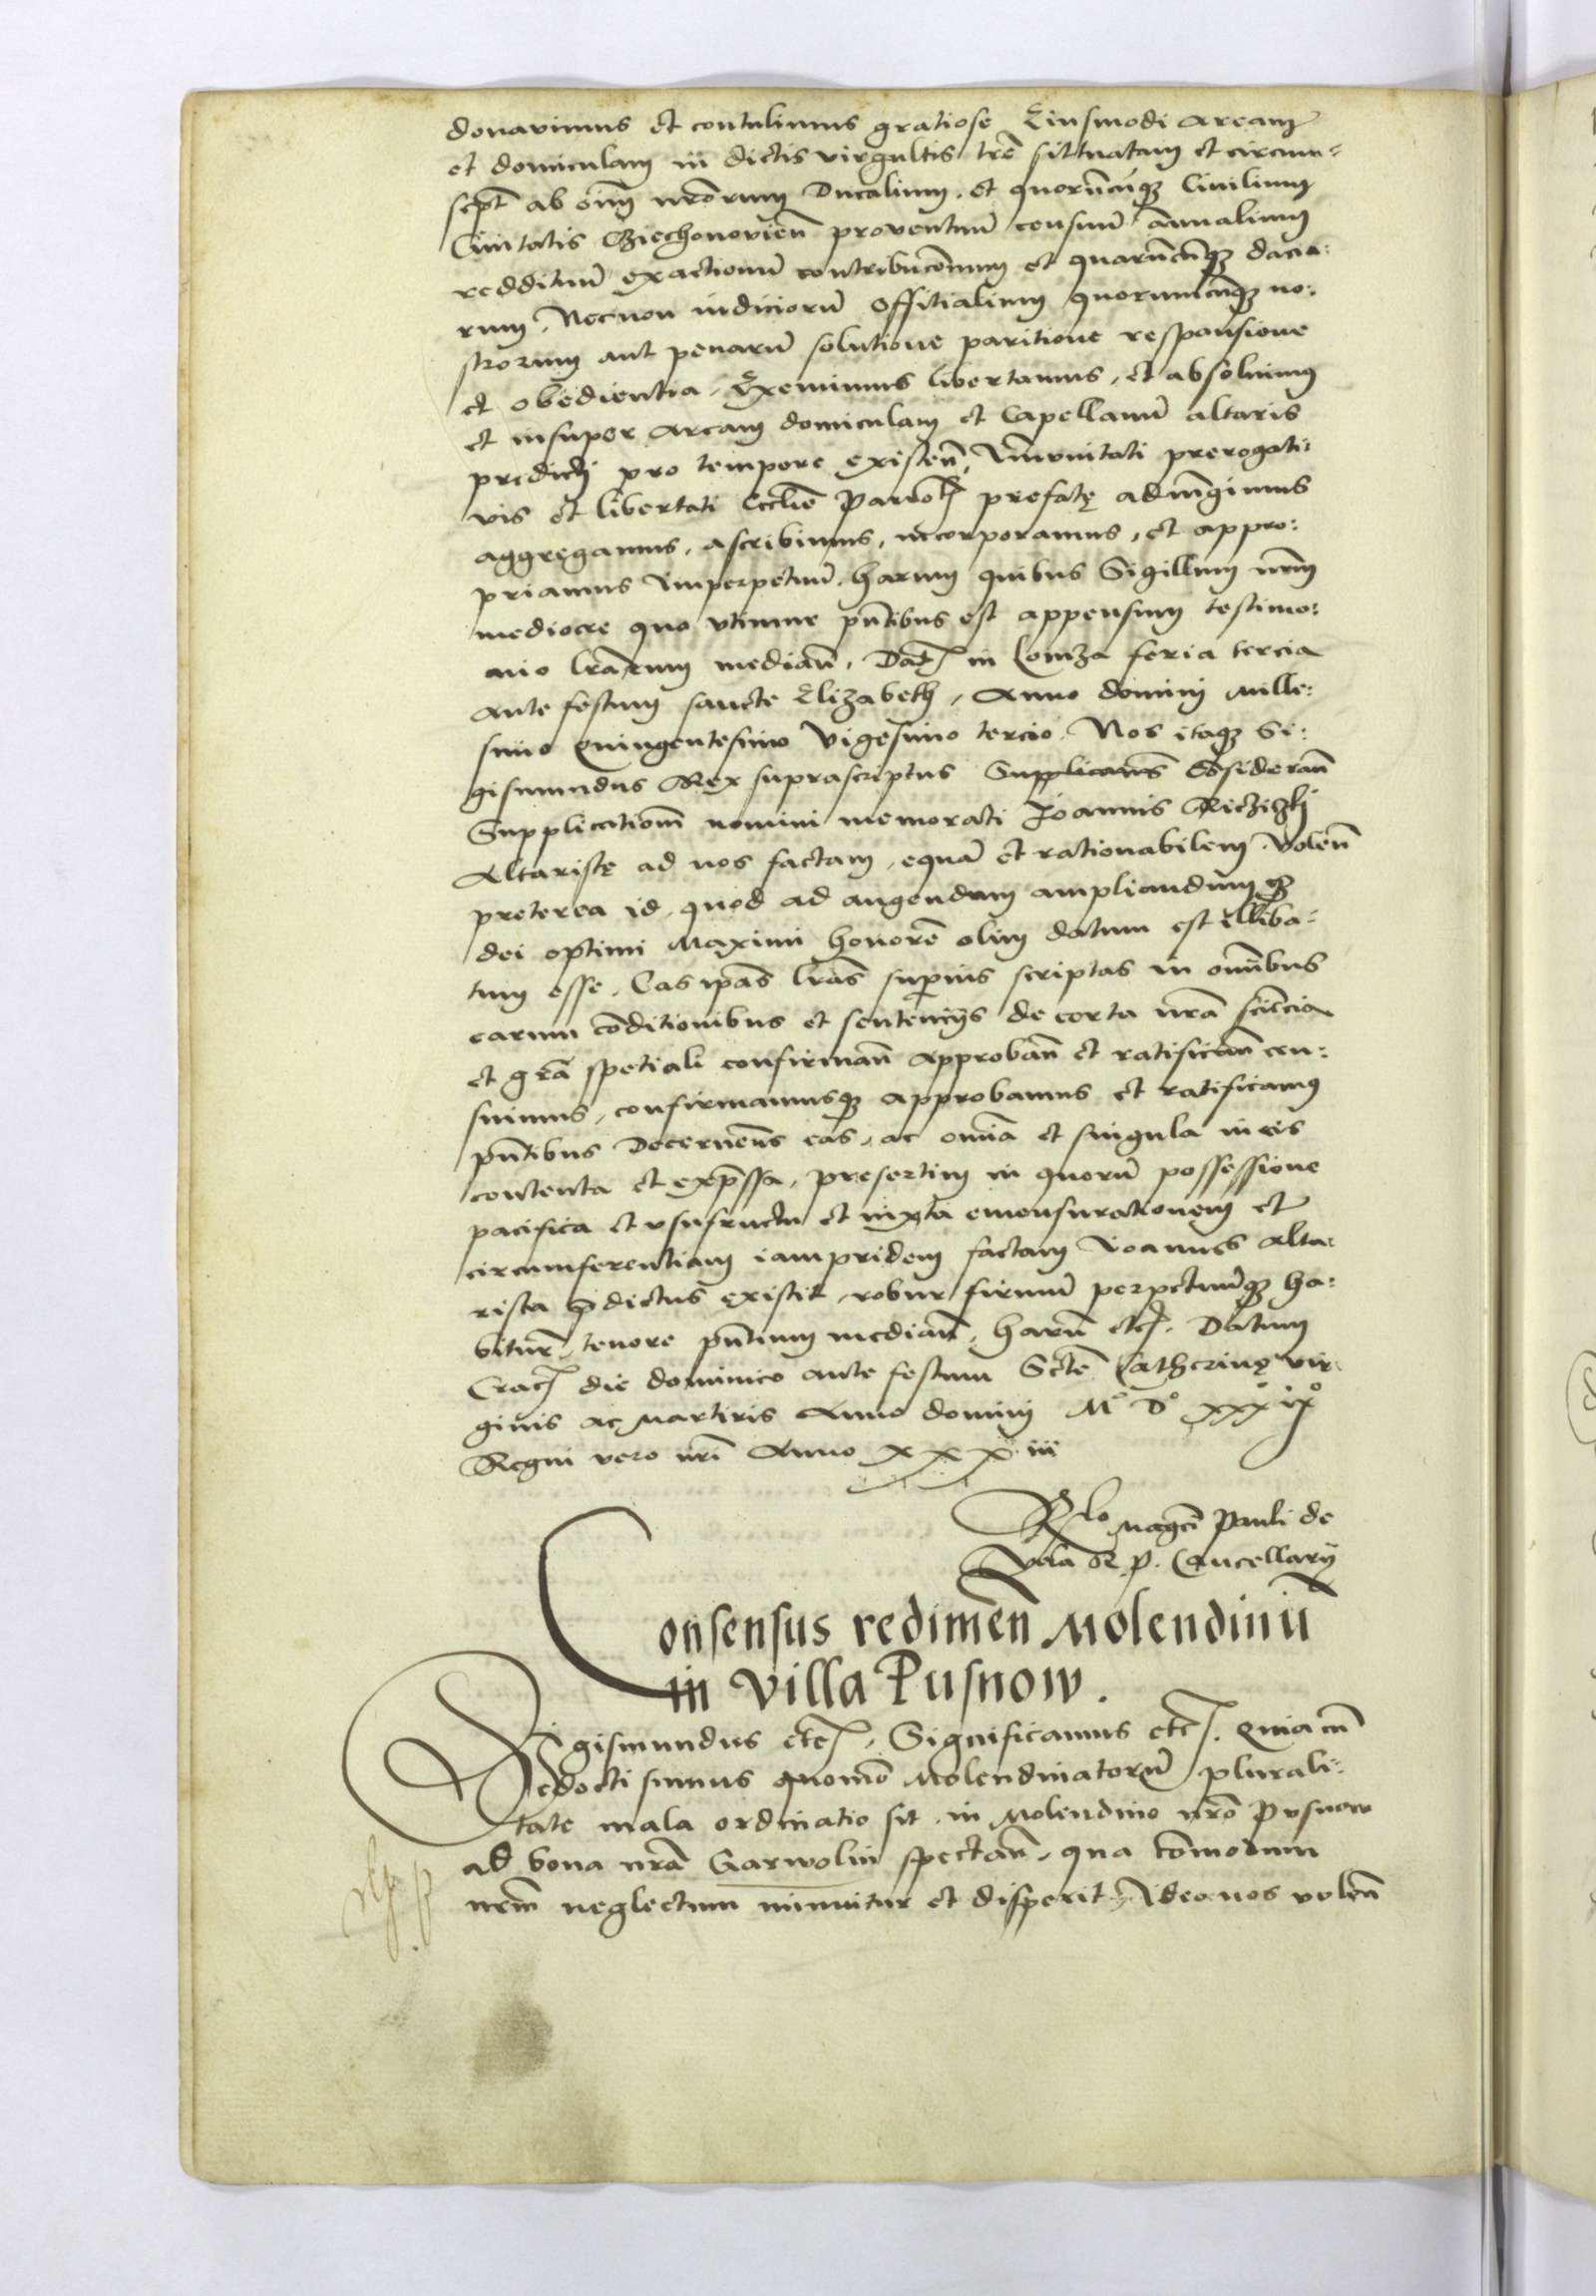 donavimus et contulimus gratiose Eiusmodi aream
et domiculam in dictis virgultis trẽ sittuatam et circum-
sept̃ ab oĩm nr̃orum Ducalium, et quorũcũqꝫ Civilium
Civitatis Cziechonovien̄ proventuũ censuũ annalium
reddituũ exactionũ contribuc̃onum et quarũcũqꝫ dacia:
rum, Necnon iudiciorũ offitialium quorumcũqꝫ no:
strorum aut penarũ solutione paritione responsione
et obedientia, Eximimus libertamus, et absolvimus
et insuper aream domiculam et Capellanũ altaris
predicti pro tempore existen̄, Im̄unitati prerogati:
vis et libertati Eccl̃ie Parroch prefatę adiũgimus
aggregamus, ascribimus, incorporamus, et appro:
priamus Imperpetuũ. harum quibus Sigillum nr̃m
mediocre quo utimur pñtibus est appensum testimo:
nio lr̃arum median̄. Dat̃ in Lomza feria tercia
ante festum sancte Elizabeth, Anno domini mille:
simo Quingentesimo Vigesimo tercio. Nos itaqꝫ Si:
gismundus Rex suprascriptus Considerañ
Supplicationem̃ nomini memorati Joannis
Altaristę ad nos factam, equã et rationabilem. Volen̄
preterea id quod ad augendum ampliandumqꝫ
dei optimi Maximi honorẽ olim datum est illiba-
tum esse. Eas ip̃as lr̃as superius scriptas in omnibus
earum cõditionibus et sentencijs de certa nr̃a sciẽcia
et gr̃a spetiali confirmañ approbañ et ratificañ cen:
suimus, confirmamusqꝫ approbamus et ratificamus
pñtibus Decernens eas, ac omĩa et singula in eis
contenta et exp̃ssa, presertim in quorũ possessione
pacifica et usufructu et iuxta emensurationem et
circumferentiam iampridem factam Ioannes alta-
rista p̃dictus existit, robur firmũ perpetuũqꝫ ha:
bitur̃, tenore pñtium median̄, harũ etc̃. Datum
Crac̃ die dominico ante festum Sctẽ Catherinę vir-
ginis ac Martiris Anno domini Mº Dº xxxixº
Regni vero nr̃i Anno xxxiii
Rlo Mag̃ci Pauli de
Vola R. p. Cancellarij
Consensus redimen̄ Molendinũ
in villa Pusnow.
Sigismundus etc̃. Significamus etc̃. Quia cũ
edocti sumus quomõ Molendinatorũ plurali:
tate mala ordinatio sit in Molendino nr̃o Pusnow
ad bona nr̃a Garwolin spectañ, qua com̄odum
nr̃m neglectum minuitur et disperit, Ideo nos volen̄